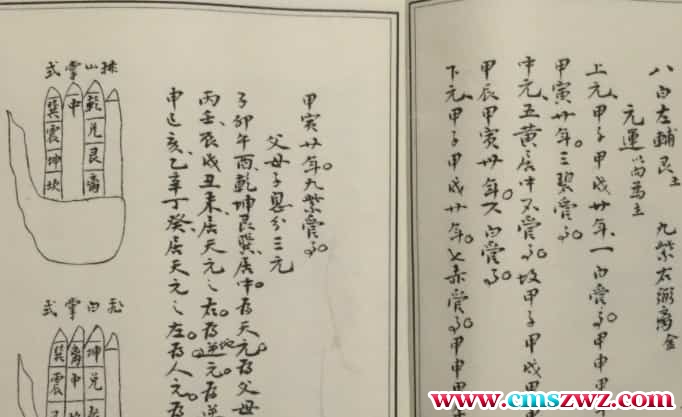 八白左輔艮土 九紫右弼离金
元運以向為主
上元甲子甲戌廿年一白管了甲申甲
甲寅廿年三碧管了
中元五黄居中不管了故甲子甲戌甲
甲辰甲寅廿年六白管了
下元甲子甲戌廿年七赤管了甲申甲
甲寅廿年九紫管了
父母子息分三元
子卯午酉乾坤艮巽居中為天元為父母
丙壬辰戌丑未居天元之右為地元為逆
申巳亥乙辛丁癸居天元之左為人元為
排山掌式
乾兑艮离
中
巽震坤坎
飛白掌式
坤兑
離中
巽震
www.cmszwz.com